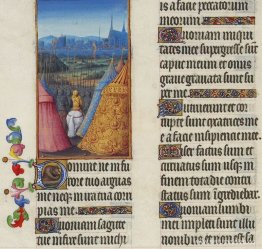 Domine ne in fu
rore tuo arguas
me neq in ira tua corri
pias me
Quoniam sagitte
tue infixe sunt michi
is a facie peccatorum
meorum
Quoniam iniqui
tates mee supergresse sūt
caput meum et onus
grave gravata sunt su
per me
Putruerunt et cor
rupte sunt cicatrices me
e a facie insipientie mee
Miser factus sum et
curvatus sum usq in
finem tota die contri
status sum ingrediebar
Quoniam lumbi
mei impleti sunt illu